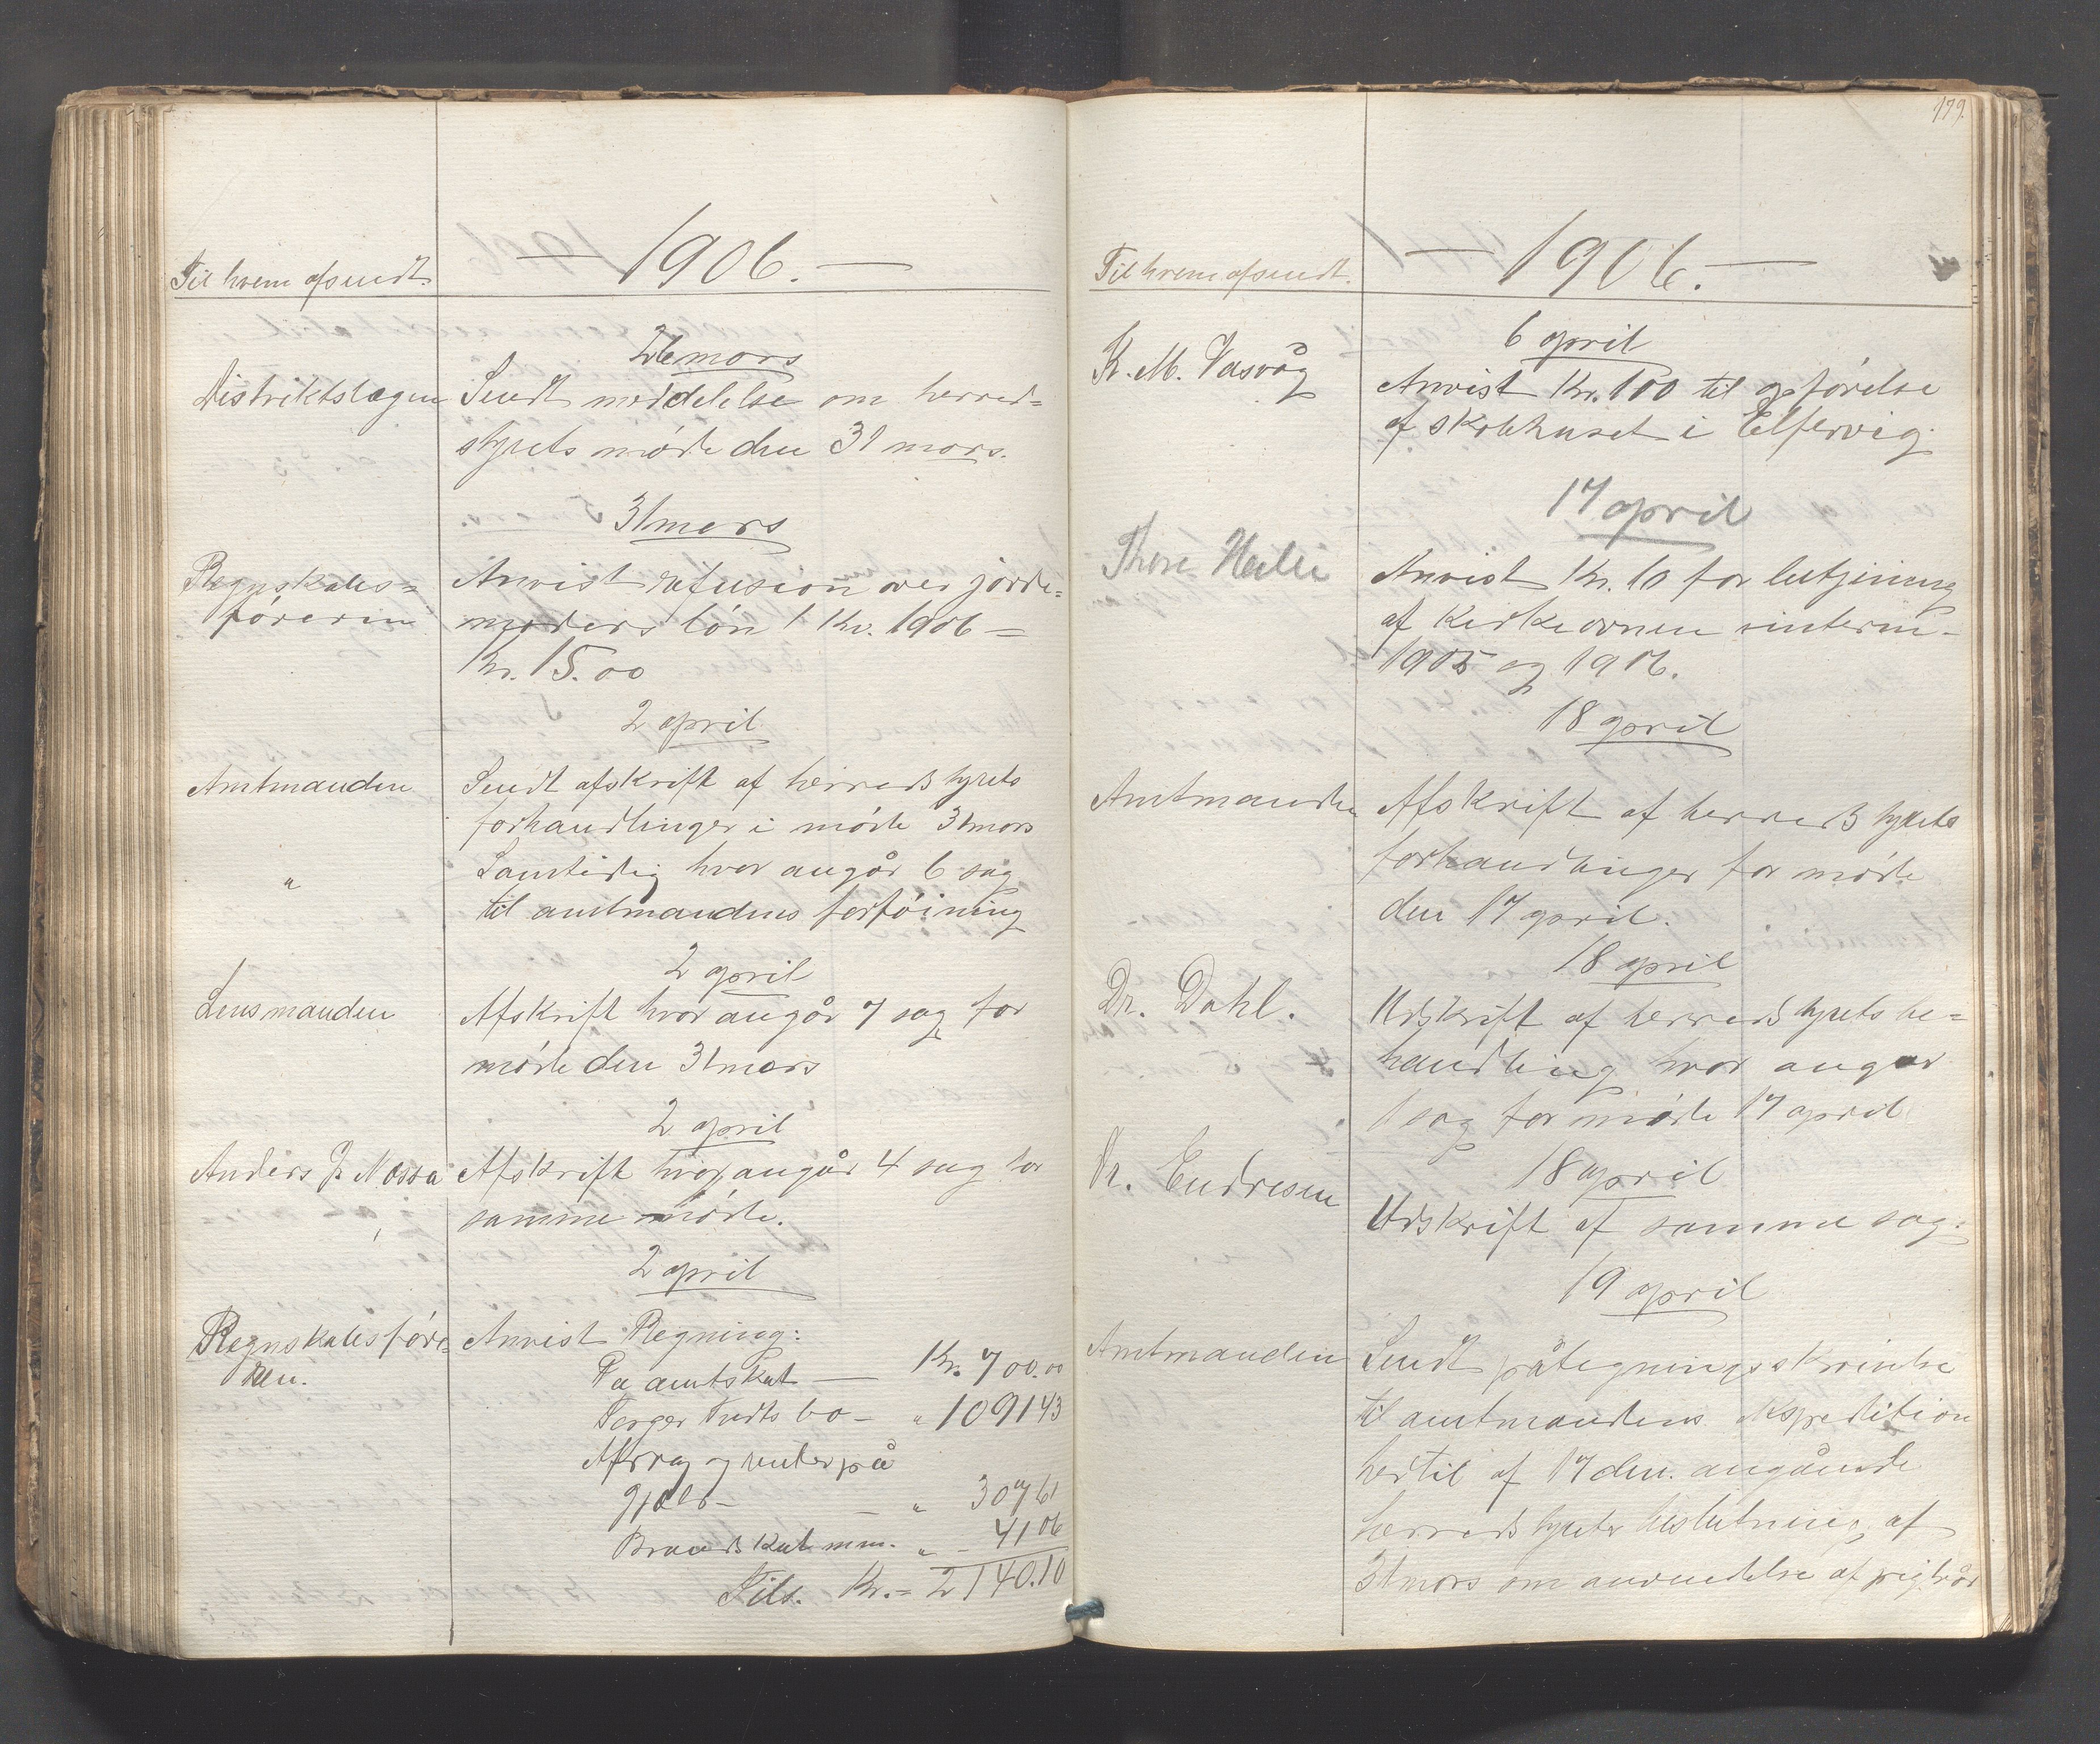 Til hvem afsendt.
— 1906. —
26 mars
Distriktslægen Sendt meddelelse om herred=
styrets møde den 31 mars.
31 mars
Regnskabs= Anvist refusion over jorde=
føreren moderens løn 1 Kv. 1906 =
Kr. 15.00
2 april
Amtmanden Sendt afskrift af herredstyrets
forhandlinger i møde 31 mars
" Samtidig hvor angår 6 sag
til amtmandens forføining
2 april
Lensmanden Afskrift hvor angår 7 sag for
møde den 31 mars
2 april
Anders J. Nossa Afskrift hvor angår 4 sag for
samme møde.
2 april
Regnskabsføre= Anvist Regning:
ren. Pa amtskat — Kr. 700.00
Torger bo — " 1091 43
Afdrag og renter på
gjæld — " 307 61
Brandskat mm. " - 41 06
Tils. Kr. = 2140.10
179.
Til hvem afsendt.
— 1906. —
6 april
K. M. Vasvåg Anvist Kr. 100 til opførelse
af skolehuset i Elfervig.
17 april
Thore Anvist Kr. 10 for
af Kirkeovnen vinteren
1905 og 1906.
18 april
Amtmanden Afskrift af herredstyrets
forhandlinger for møde
den 17 april.
18 april
Dr. Dahl. Udskrift af herredstyrets be=
handling hvor angår
1 sag for møde 17 april
18 april
Dr. Endresen Udskrift af samme sag.
19 april
Amtmanden Sendt påtegningsskrivelse
til amtmandens Expedition
hertil af 17 den. angående
herredstyrets beslutning af
31 mars om anvendelse af pigtråd